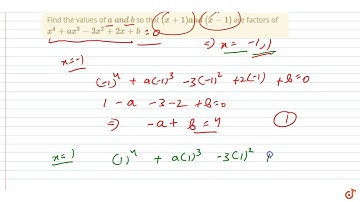 Find the values of a and b so that (x + 1) and (x − 1) are factors of
x⁴ + ax³ − 3x² + 2x + b = 0
⇒ x = -1, 1
x=-1
(-1)⁴ + a(-1)³ -3(-1)² +2(-1) +b=0
1 - a -3-2 +b=0
⇒ -a+ b=4
1
x=1 (1)⁴ + a(1)³ -3(1)²